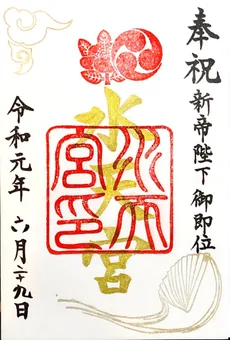 奉祝
新帝陛下御即位
水天宮
水天宮印
令和元年 六月二十九日